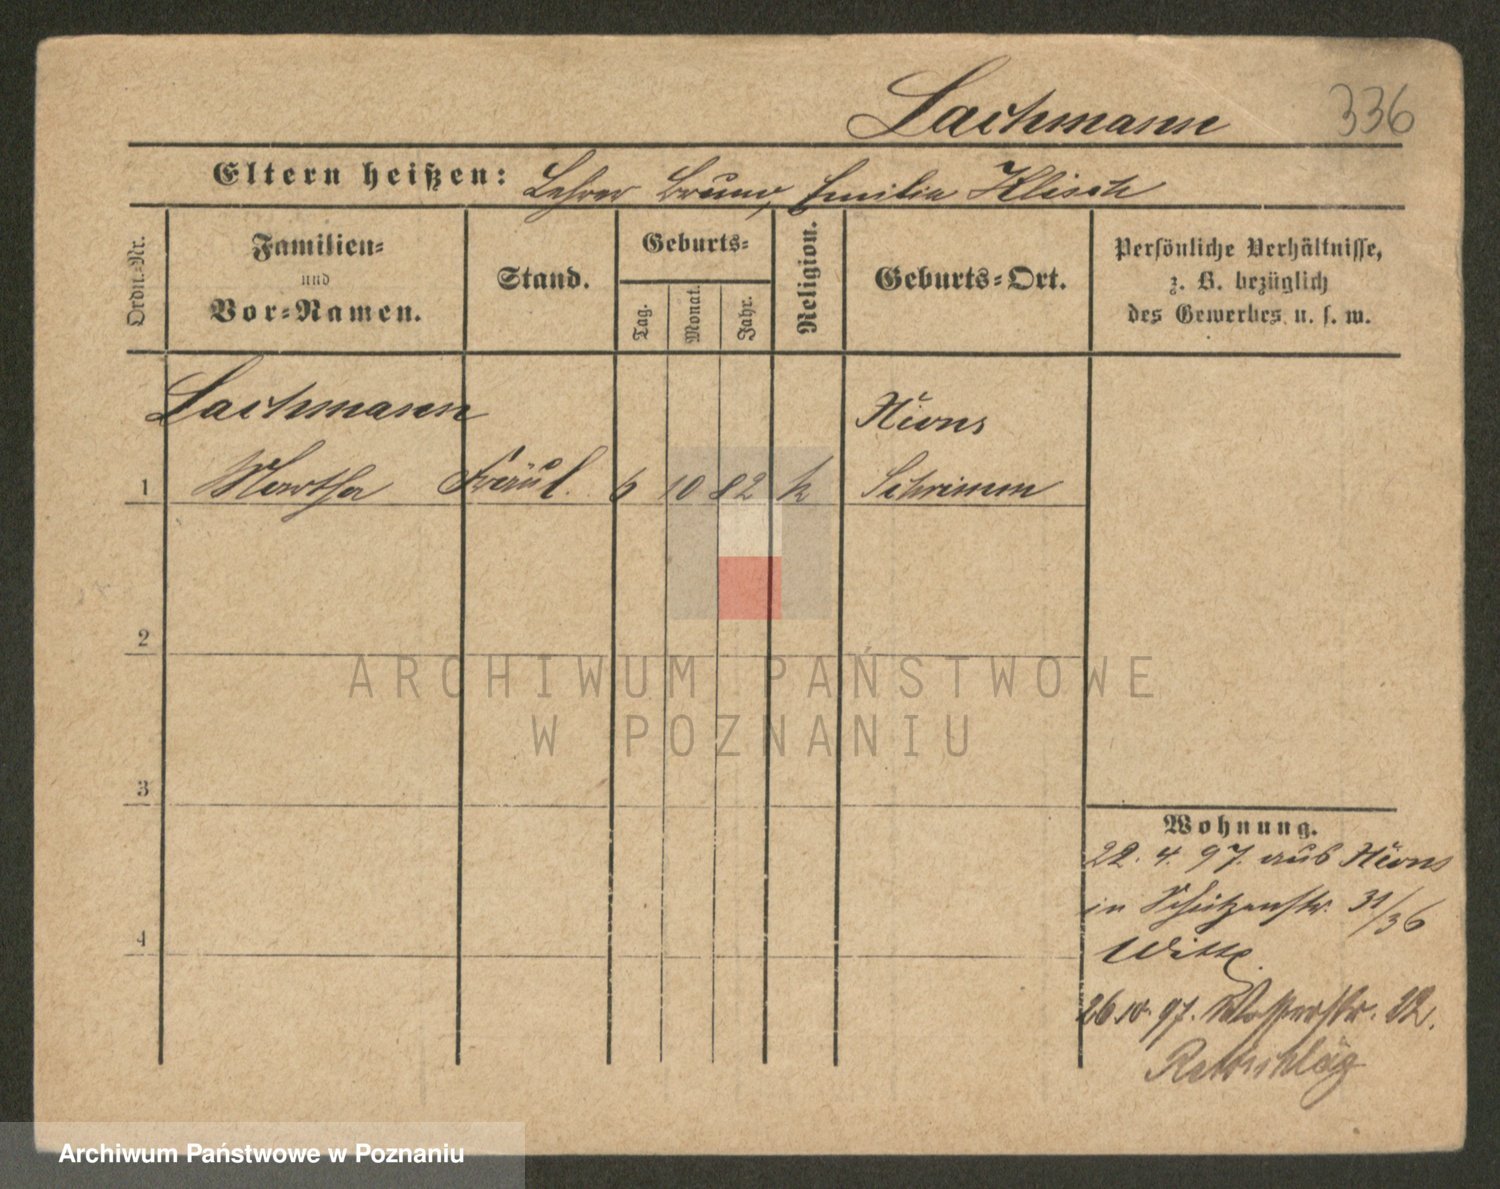 Lachmann 336
Eltern heißen: Lehrer Bruno, Emilie Klisch
Ordn.-Nr.
Familien-
und
Vor-Namen.
Stand.
Geburts-
Tag.
Monat.
Jahr.
Religion.
Geburts-Ort.
Persönliche Verhältnisse,
z. B. bezüglich
des Gewerbes u. s. w.
Lachmann Xions
1 Martha Fräul. 6 10 82 k Schrimm
2
3
4
Wohnung.
22. 4. 97. aus Xions
in Schützenstr. 31/36
Witte
26.10.97. Wasserstr. 22.
ARCHIWUM PAŃSTWOWE
W POZNANIU
Archiwum Państwowe w Poznaniu